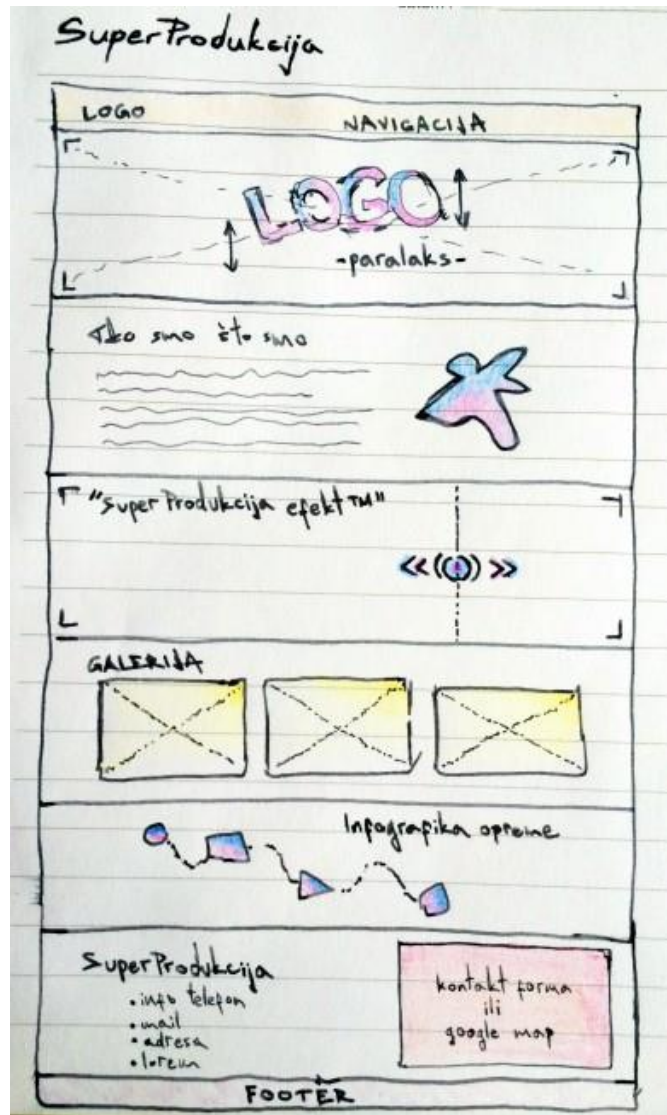 SuperProdukcija
LOGO
NAVIGACIJA
LOGO
-paralaks-
Tko smo što smo
"SuperProdukcija efekt TM"
GALERIJA
Infografika opreme
SuperProdukcija
• info telefon
• mail
• adresa
• lorem
kontakt forma
ili
google map
FOOTER